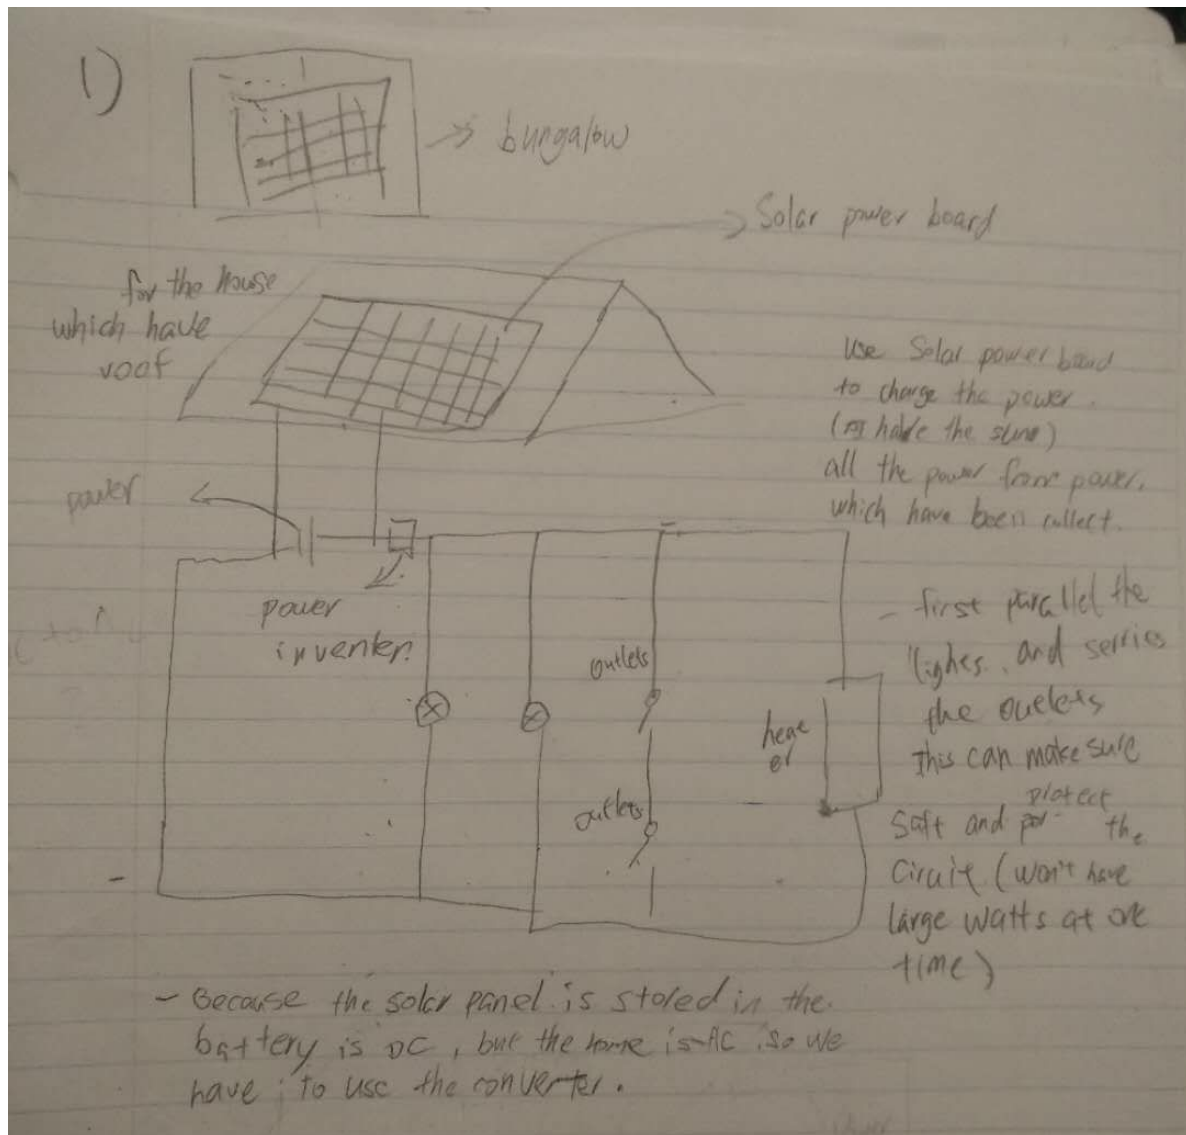 1)
bungalow
Solar power board
for the house
which have
roof
use Solar power board
to charge the power.
have the
all the power from power.
which have been collect.
power
power
inventer.
outlets
heat
er
outlets
- first parallel the
lighes. and serries
the outlets
this can make sure
protect
saft and the
Circuit (won't have
large watts at one
time)
- Because the solar panel is stored in the
battery is DC, but the home is AC so we
have to use the converter.